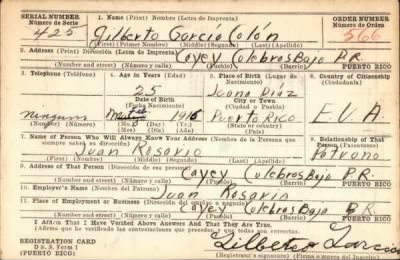 SERIAL NUMBER 1. Name (Print) Nombre (Letra de Imprenta) ORDER NUMBER
Número de Serie Número de Orden
425 Gilberto Garcia Colón 566
(First) (Primer Nombre) (Middle) (Segundo) (Last) (Apellido)
2. Address (Print) Dirección (Letra de Imprenta)
Cayey Culebras Bajo P.R.
(Number and street) (Número y calle) (Town) (Pueblo) PUERTO RICO
3. Telephone (Teléfono) 4. Age in Years (Edad) 5. Place of Birth (Lugar de Nacimiento) 6. Country of Citizenship (Ciudadanía)
25 Juana Diaz
Date of Birth City or Town
(Fecha de Nacimiento) (Ciudad o Pueblo)
1916 Puerto Rico E.U.A.
Mo. Day Yr. State or country
(Mes) (Día) (Año) (País)
7. Name of Person Who Will Always Know Your Address (Nombre de la Persona que siempre sabrá su dirección) 8. Relationship of That Person (Parentesco)
Juan Rosario Patrono
(First) (Nombre) (Middle) (Segundo) (Last) (Apellido)
9. Address of That Person (Dirección de esa persona)
Cayey Culebras Bajo P.R.
(Number and street) (Número y calle) (Town) (Pueblo) PUERTO RICO
10. Employer's Name (Nombre del Patrono)
Juan Rosario
11. Place of Employment or Business (Dirección del empleo)
Cayey Culebras Bajo P.R.
(Number and street) (Número y calle) (Town) (Pueblo) PUERTO RICO
I Affirm That I Have Verified Above Answers and That They Are True.
(Afirmo que he verificado las contestaciones que preceden y que todas son correctas.
REGISTRATION CARD
D. S. S. Form 1
(PUERTO RICO)
Gilberto Garcia
(Registrant's signature) (Firma o marca del Inscrito)